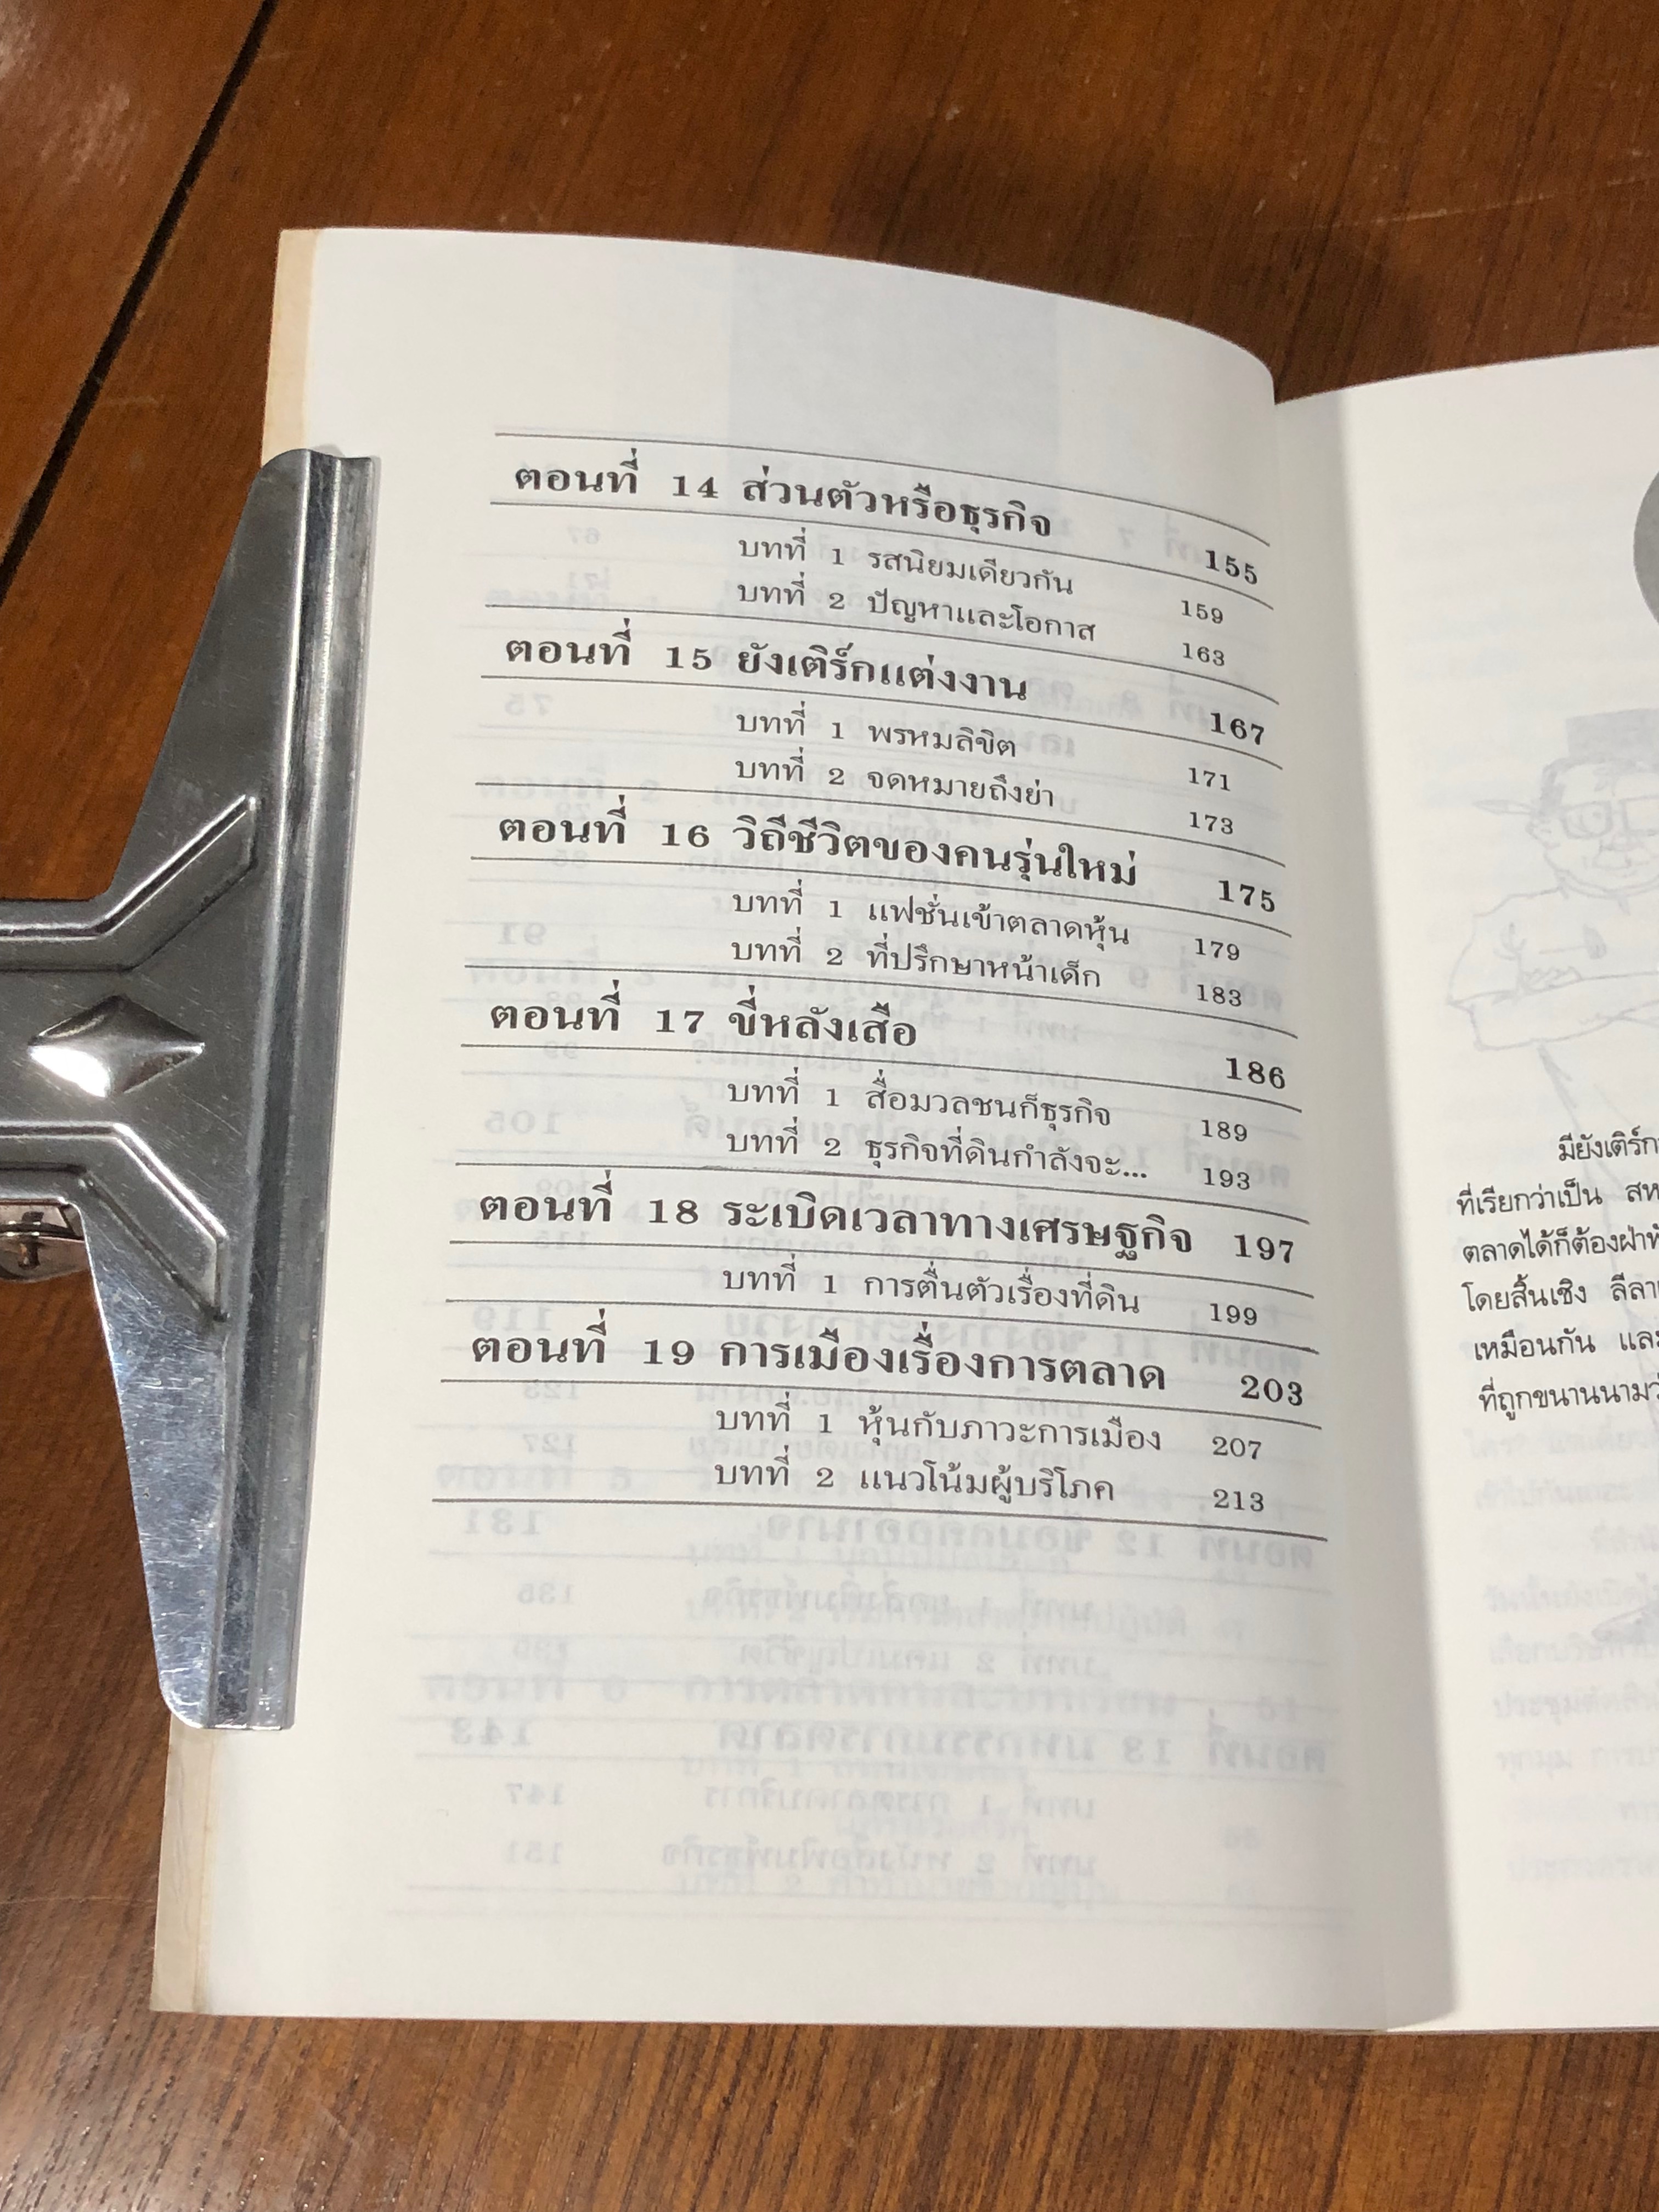 ตอนที่ 14 ส่วนตัวหรือธุรกิจ 155
บทที่ 1 รสนิยมเดียวกัน 159
บทที่ 2 ปัญหาและโอกาส 163
ตอนที่ 15 ยังเติร์กแต่งงาน 167
บทที่ 1 พรหมลิขิต 171
บทที่ 2 จดหมายถึงย่า 173
ตอนที่ 16 วิถีชีวิตของคนรุ่นใหม่ 175
บทที่ 1 แฟชั่นเข้าตลาดหุ้น 179
บทที่ 2 ที่ปรึกษาหน้าเด็ก 183
ตอนที่ 17 ขี่หลังเสือ 186
บทที่ 1 สื่อมวลชนก็ธุรกิจ 189
บทที่ 2 ธุรกิจที่ดินกำลังจะ... 193
ตอนที่ 18 ระเบิดเวลาทางเศรษฐกิจ 197
บทที่ 1 การตื่นตัวเรื่องที่ดิน 199
ตอนที่ 19 การเมืองเรื่องการตลาด 203
บทที่ 1 หุ้นกับภาวะการเมือง 207
บทที่ 2 แนวโน้มผู้บริโภค 213
มียังเติร์ก
ที่เรียกว่าเป็น สห
ตลาดได้ก็ต้องฝ่าฟั
โดยสิ้นเชิง ลีลา
เหมือนกัน และ
ที่ถูกขนานนามว่